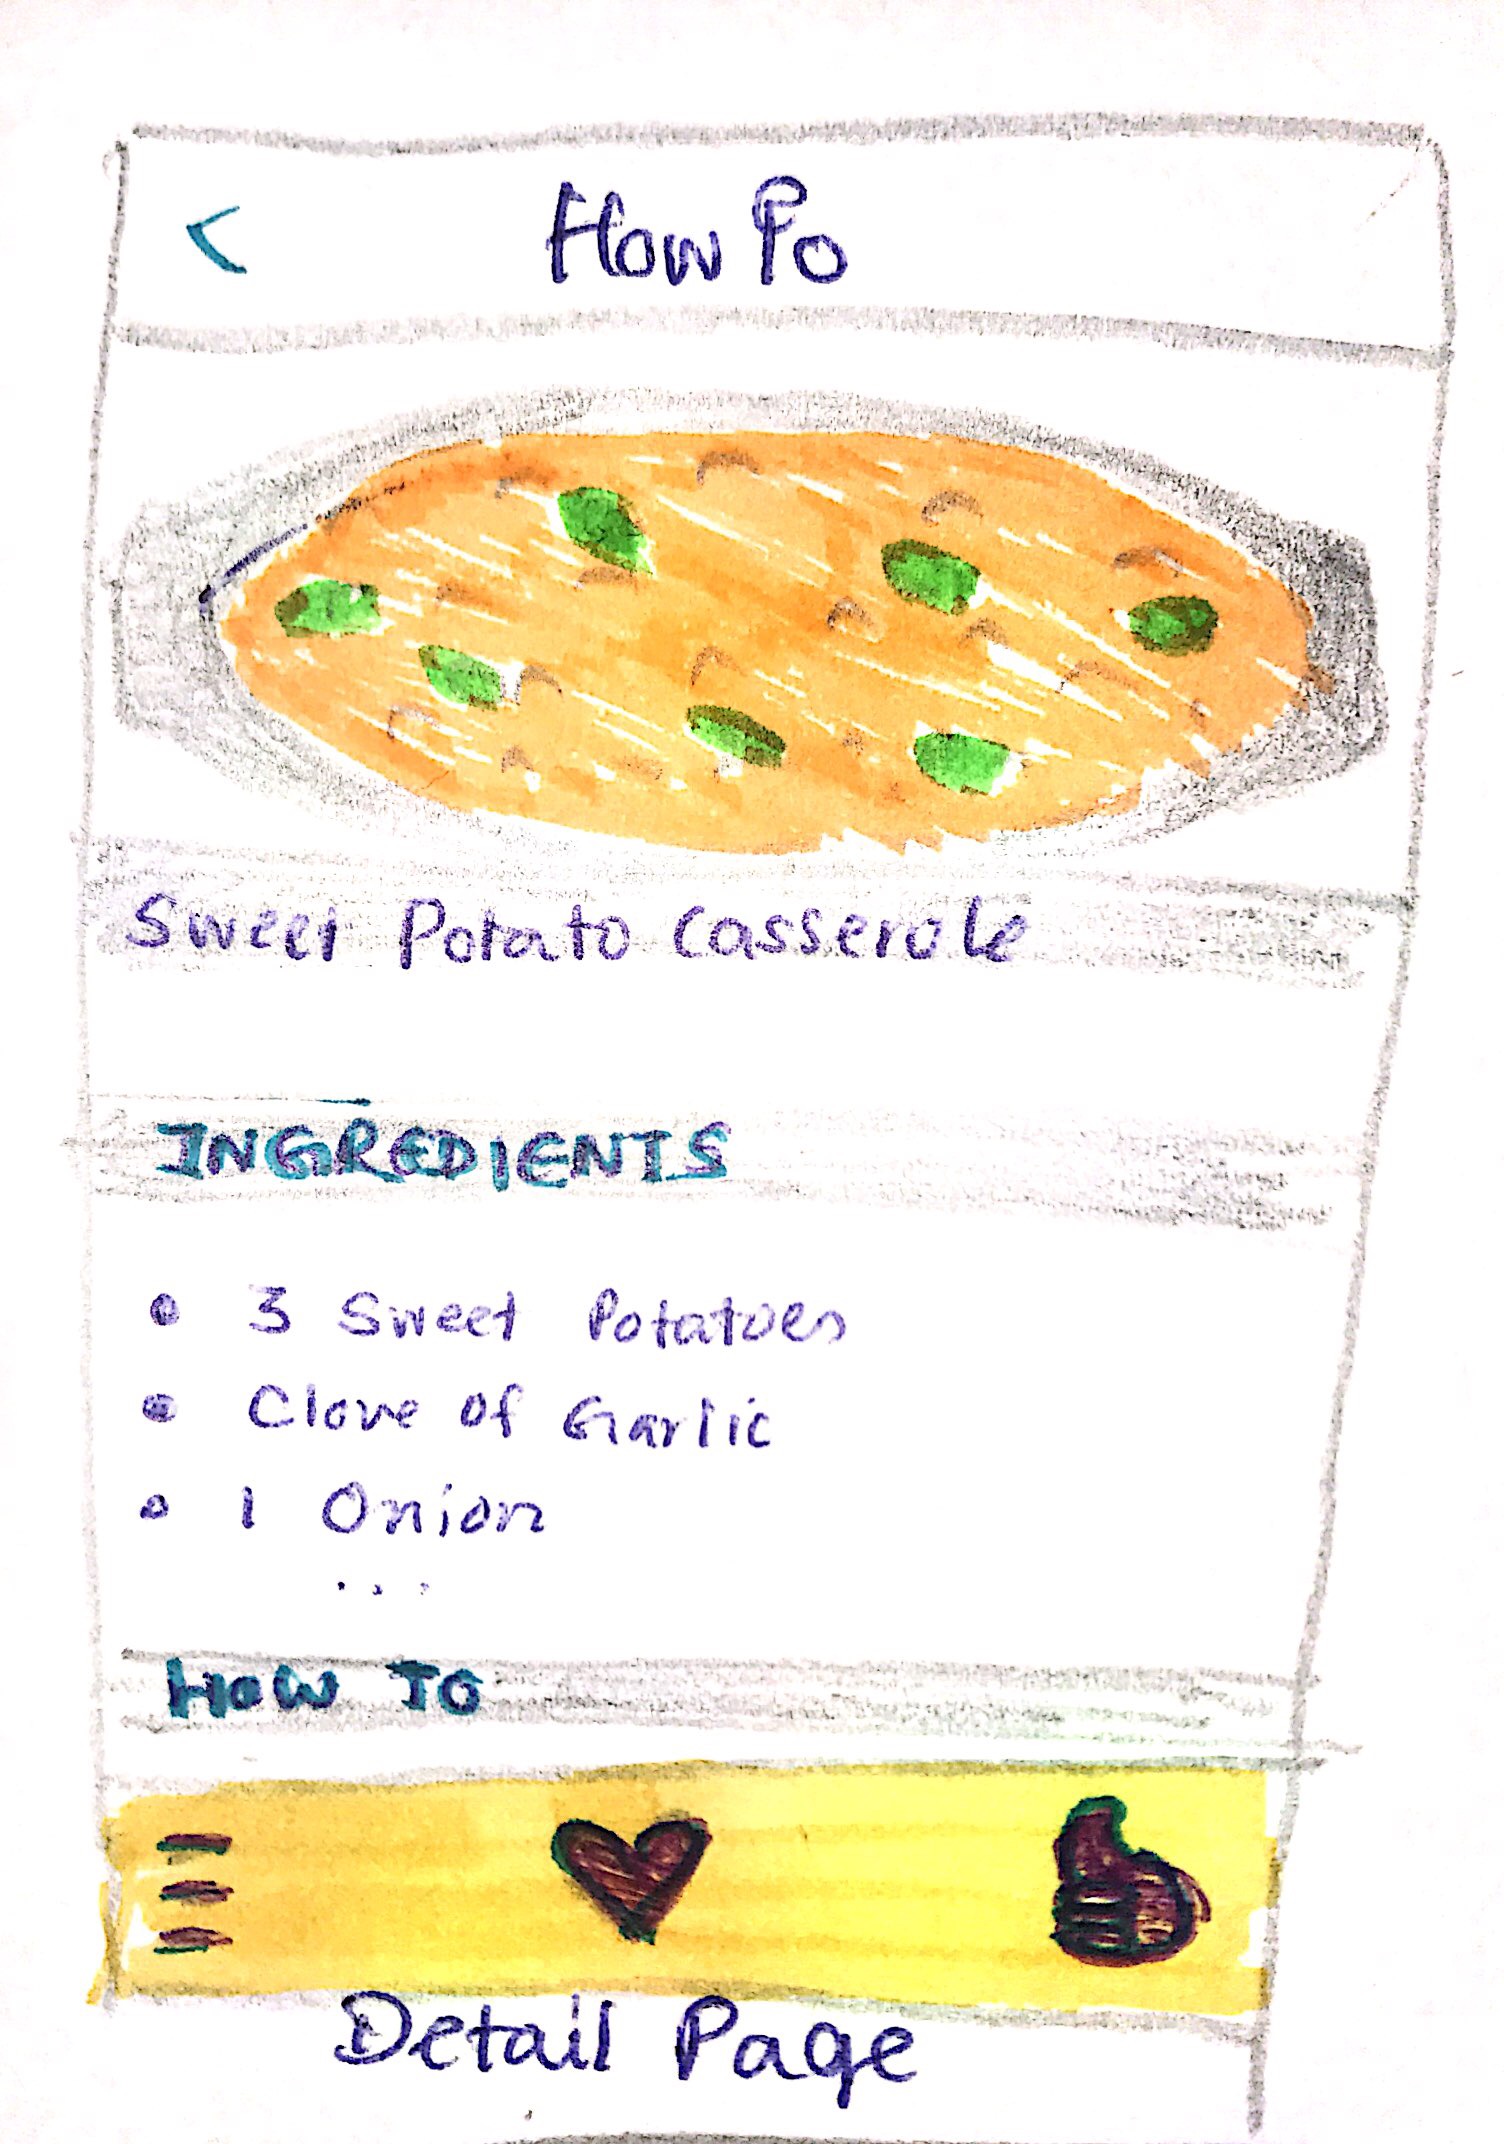 <
How To
Sweet Potato Casserole
INGREDIENTS
• 3 Sweet Potatoes
• Clove of Garlic
• 1 Onion
...
HOW TO
Detail Page